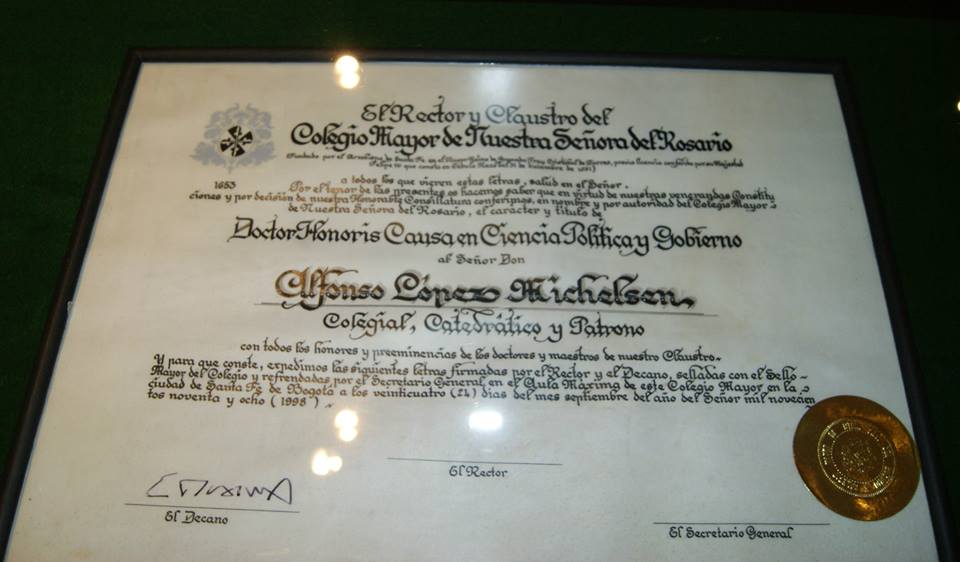 El Rector y Claustro del
Colegio Mayor de Nuestra Señora del Rosario
(Fundado por el Arzobispo de Santa Fe en el Nuevo Reino de Granada Fray Cristóbal de Torres, previa licencia conferida por su Majestad
Felipe IV que consta en Cédula Real del 31 de diciembre de 1651)
1653
a todos los que vieren estas letras, salud en el Señor.
Por el tenor de las presentes os hacemos saber que en virtud de nuestras venerandas Constitu
ciones y por decisión de nuestra Honorable Consiliatura conferimos, en nombre y por autoridad del Colegio Mayor
de Nuestra Señora del Rosario, el caracter y titulo de
Doctor Honoris Causa en Ciencia Política y Gobierno
al Señor Don
Alfonso López Michelsen,
Colegial, Catedrático y Patrono
con todos los honores y preeminencias de los doctores y maestros de nuestro Claustro.
Y para que conste, expedimos las siguientes letras firmadas por el Rector y el Decano, selladas con el Sello
Mayor del Colegio y refrendadas por el Secretario General, en el Aula Máxima de este Colegio Mayor, en la
ciudad de Santa Fe de Bogotá a los veinticuatro (24) días del mes septiembre del año del Señor mil novecien
tos noventa y ocho (1998)
El Rector
El Decano
El Secretario General